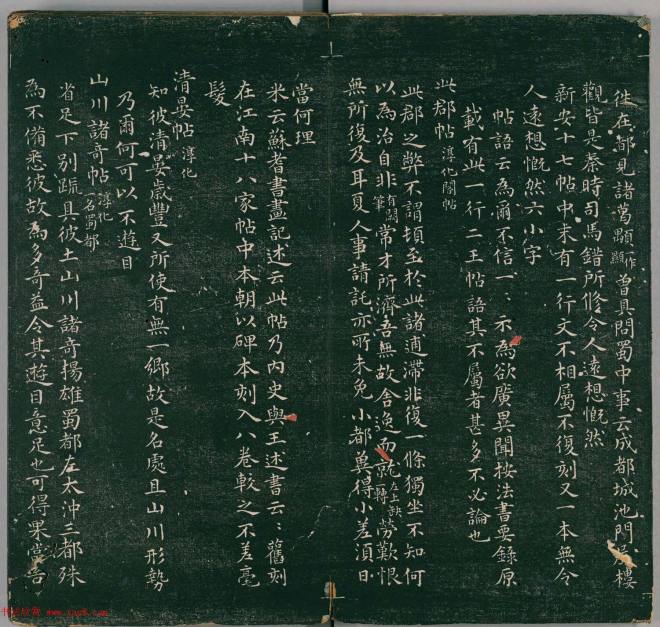 往在都見諸葛顒一作顯曾具問蜀中事云成都城池門屋樓
觀皆是秦時司馬錯所修令人遠想慨然
新安十七帖中末有一行文不相屬不復刻又一本無令
人遠想慨然六小字
帖語云為爾不信一一示為欲廣異聞按法書要錄原
載有此一行二王帖語其不屬者甚多不必論也
此郡帖淳化閣帖
此郡之弊不謂頓至於此諸逋滯非復一條獨坐不知何
以為治自非有闕筆常才所濟吾無故舍逸而就勞歎恨
無所復及耳夏人事請託亦所未免小都冀得小差須日
當何理
米云蘇耆書畫記述云此帖乃內史與王述書云云舊刻
在江南十八家帖中本朝以碑本刻入八卷較之不差毫
髮
清晏帖淳化
知彼清晏歲豐又所使有無一鄉故是名處且山川形勢
乃爾何可以不遊目
山川諸奇帖淳化一名蜀都
省足下別疏具彼土山川諸奇揚雄蜀都左太沖三都殊
為不備悉彼故為多奇益令其遊目意足也可得果當告
www.yac8.com